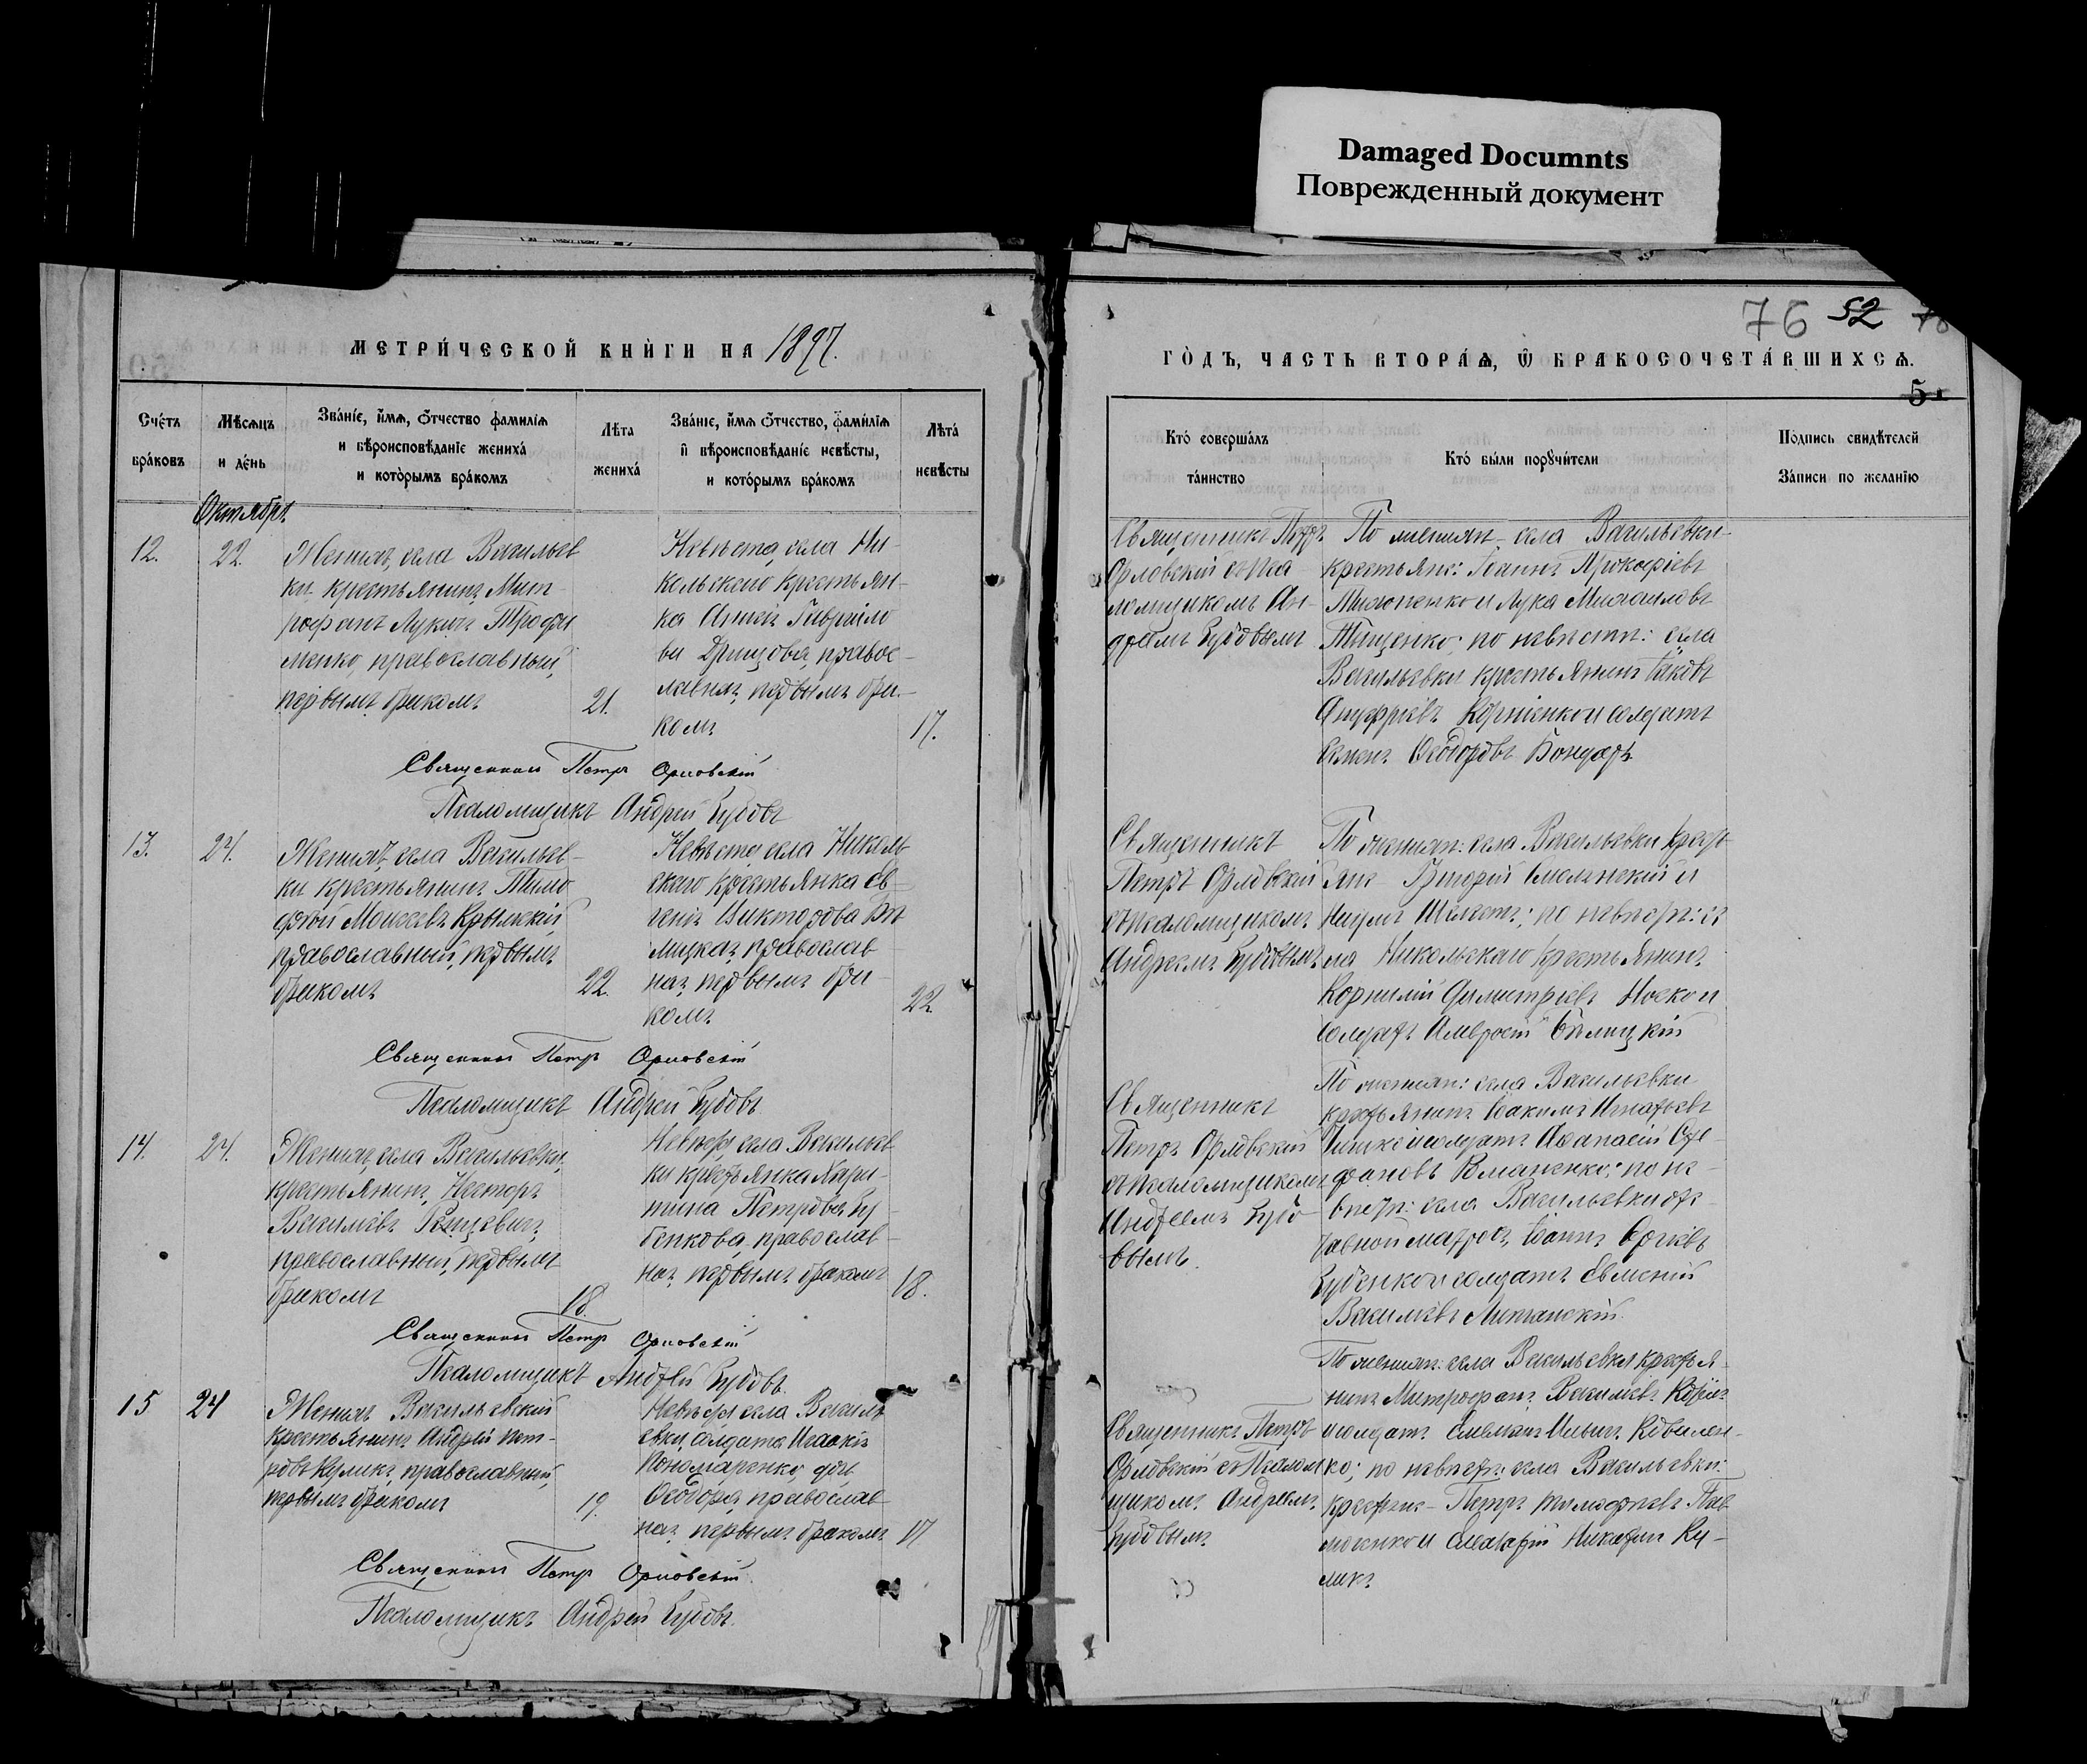 Damaged Documnts
Поврежденный документ
76 52
МЕТРИ́ЧЕСКОЙ КНИ́ГИ НА 1897.
ГО́ДЪ, ЧАСТЬ ВТОРА́Ѧ, Ѽ БРАКОСОЧЕТА́ВШИХСѦ.
Сче́тъ
бра́ковъ
Мѣсѧцъ
и де́нь
Зва́нїе, и́мѧ, ѻ́тчество фамилїѧ
и вѣроисповѣданїе жениха́
и кото́рымъ бра́комъ
Лѣта
жениха́
Зва́нїе, и́мѧ ѻ́тчество, фами́лїѧ
и҆ вѣроисповѣданїе невѣсты,
и кото́рымъ бра́комъ
Лѣта́
невѣсты
Кто́ соверша́лъ
та́инство
Кто́ бы́ли порꙋчи́тели
По́дпись свидѣтелей
За́писи по жела́нїю
Октября
12.
22.
Женихъ, села Васильев
ки крестьянинъ Мит-
рофанъ Лукинъ Трофи
менко, православный,
первымъ бракомъ
21.
Невѣста, села Ни-
кольскаго крестьян-
ка Анна Гаврiило
ва православ-
лавная, первымъ бра-
комъ
17.
Священникъ Петръ
Орловскій съ Пса
ломщикомъ Ан-
дреемъ Зубовымъ
По жениху села Васильевки
крестьяне: Іоаннъ Прокофіевъ
и Лука Михаиловъ
Тищенко; по невѣстѣ: села
Васильевки крестьянинъ Іаковъ
Онуфріевъ Корніенко и солдатъ
Ѳеодоровъ Бондарь
Священникъ Петръ Орловскій
Псаломщикъ Андрей Зубовъ
13.
24.
Женихъ, села Васильев-
ки крестьянинъ Тимо
фей Моисеевъ Крымскій,
православный, первымъ
бракомъ
22.
Невѣста села Николь
скаго крестьянка Ев-
генія Викторова Бѣ
лицкая, православ
ная, первымъ бра-
комъ
22
Священникъ
Петръ Орловскій
съ псаломщикомъ
Андреемъ Зубовымъ
По жених: села Васильевки крест
яне Григорій Смолянскій и
Шелестъ; по невѣст: се
ла Никольскаго крестьянинъ
Корнилій Димитріевъ Носко и
солдатъ Амвросій Бѣлицкій
Священникъ Петръ Орловскій
Псаломщикъ Андрей Зубовъ
14.
24.
Женихъ, села Васильевки,
крестьянинъ, Несторъ
Васильевъ
православный, первымъ
бракомъ
18.
Невѣста, села Васильев
ки крестьянка Хари-
тина Петрова Зу
бенкова, православ-
ная, первымъ бракомъ
18.
Священникъ
Петръ Орловскій
съ псаломщикомъ
Андреемъ Зубо
вымъ
По жених: села Васильевки
крестьянинъ Іоакимъ Игнатьевъ
и солдатъ Аѳанасій Сте-
фановъ Романенко; по не-
вѣст: села Васильевки от-
ставной матросъ, Іоаннъ Сергіевъ
Зубенко и солдатъ Евменій
Васильевъ
Священникъ Петръ Орловскій
Псаломщикъ Андрей Зубовъ.
15
24
Женихъ Васильевскій
крестьянинъ Андрей Пет-
ровъ Куликъ, православный,
первымъ бракомъ
19.
Невѣста села Василь
евки, солдата Исаакія
Пономаренко дочь
Ѳеодора, православ
ная, первымъ бракомъ
17
Священникъ Петръ
Орловскій съ Псалом
щикомъ Андреемъ
Зубовымъ
По жених: села Васильевки крестья-
нинъ Митрофанъ Васильевъ
и солдатъ Емеліанъ Ильинъ Коваленко-
ко; по невѣст: села Васильевки:
крестьяне Петръ Тимофеевъ Пав
люченко и Никитинъ Ку-
ликъ
Священникъ Петръ Орловскій
Псаломщикъ Андрей Зубовъ.